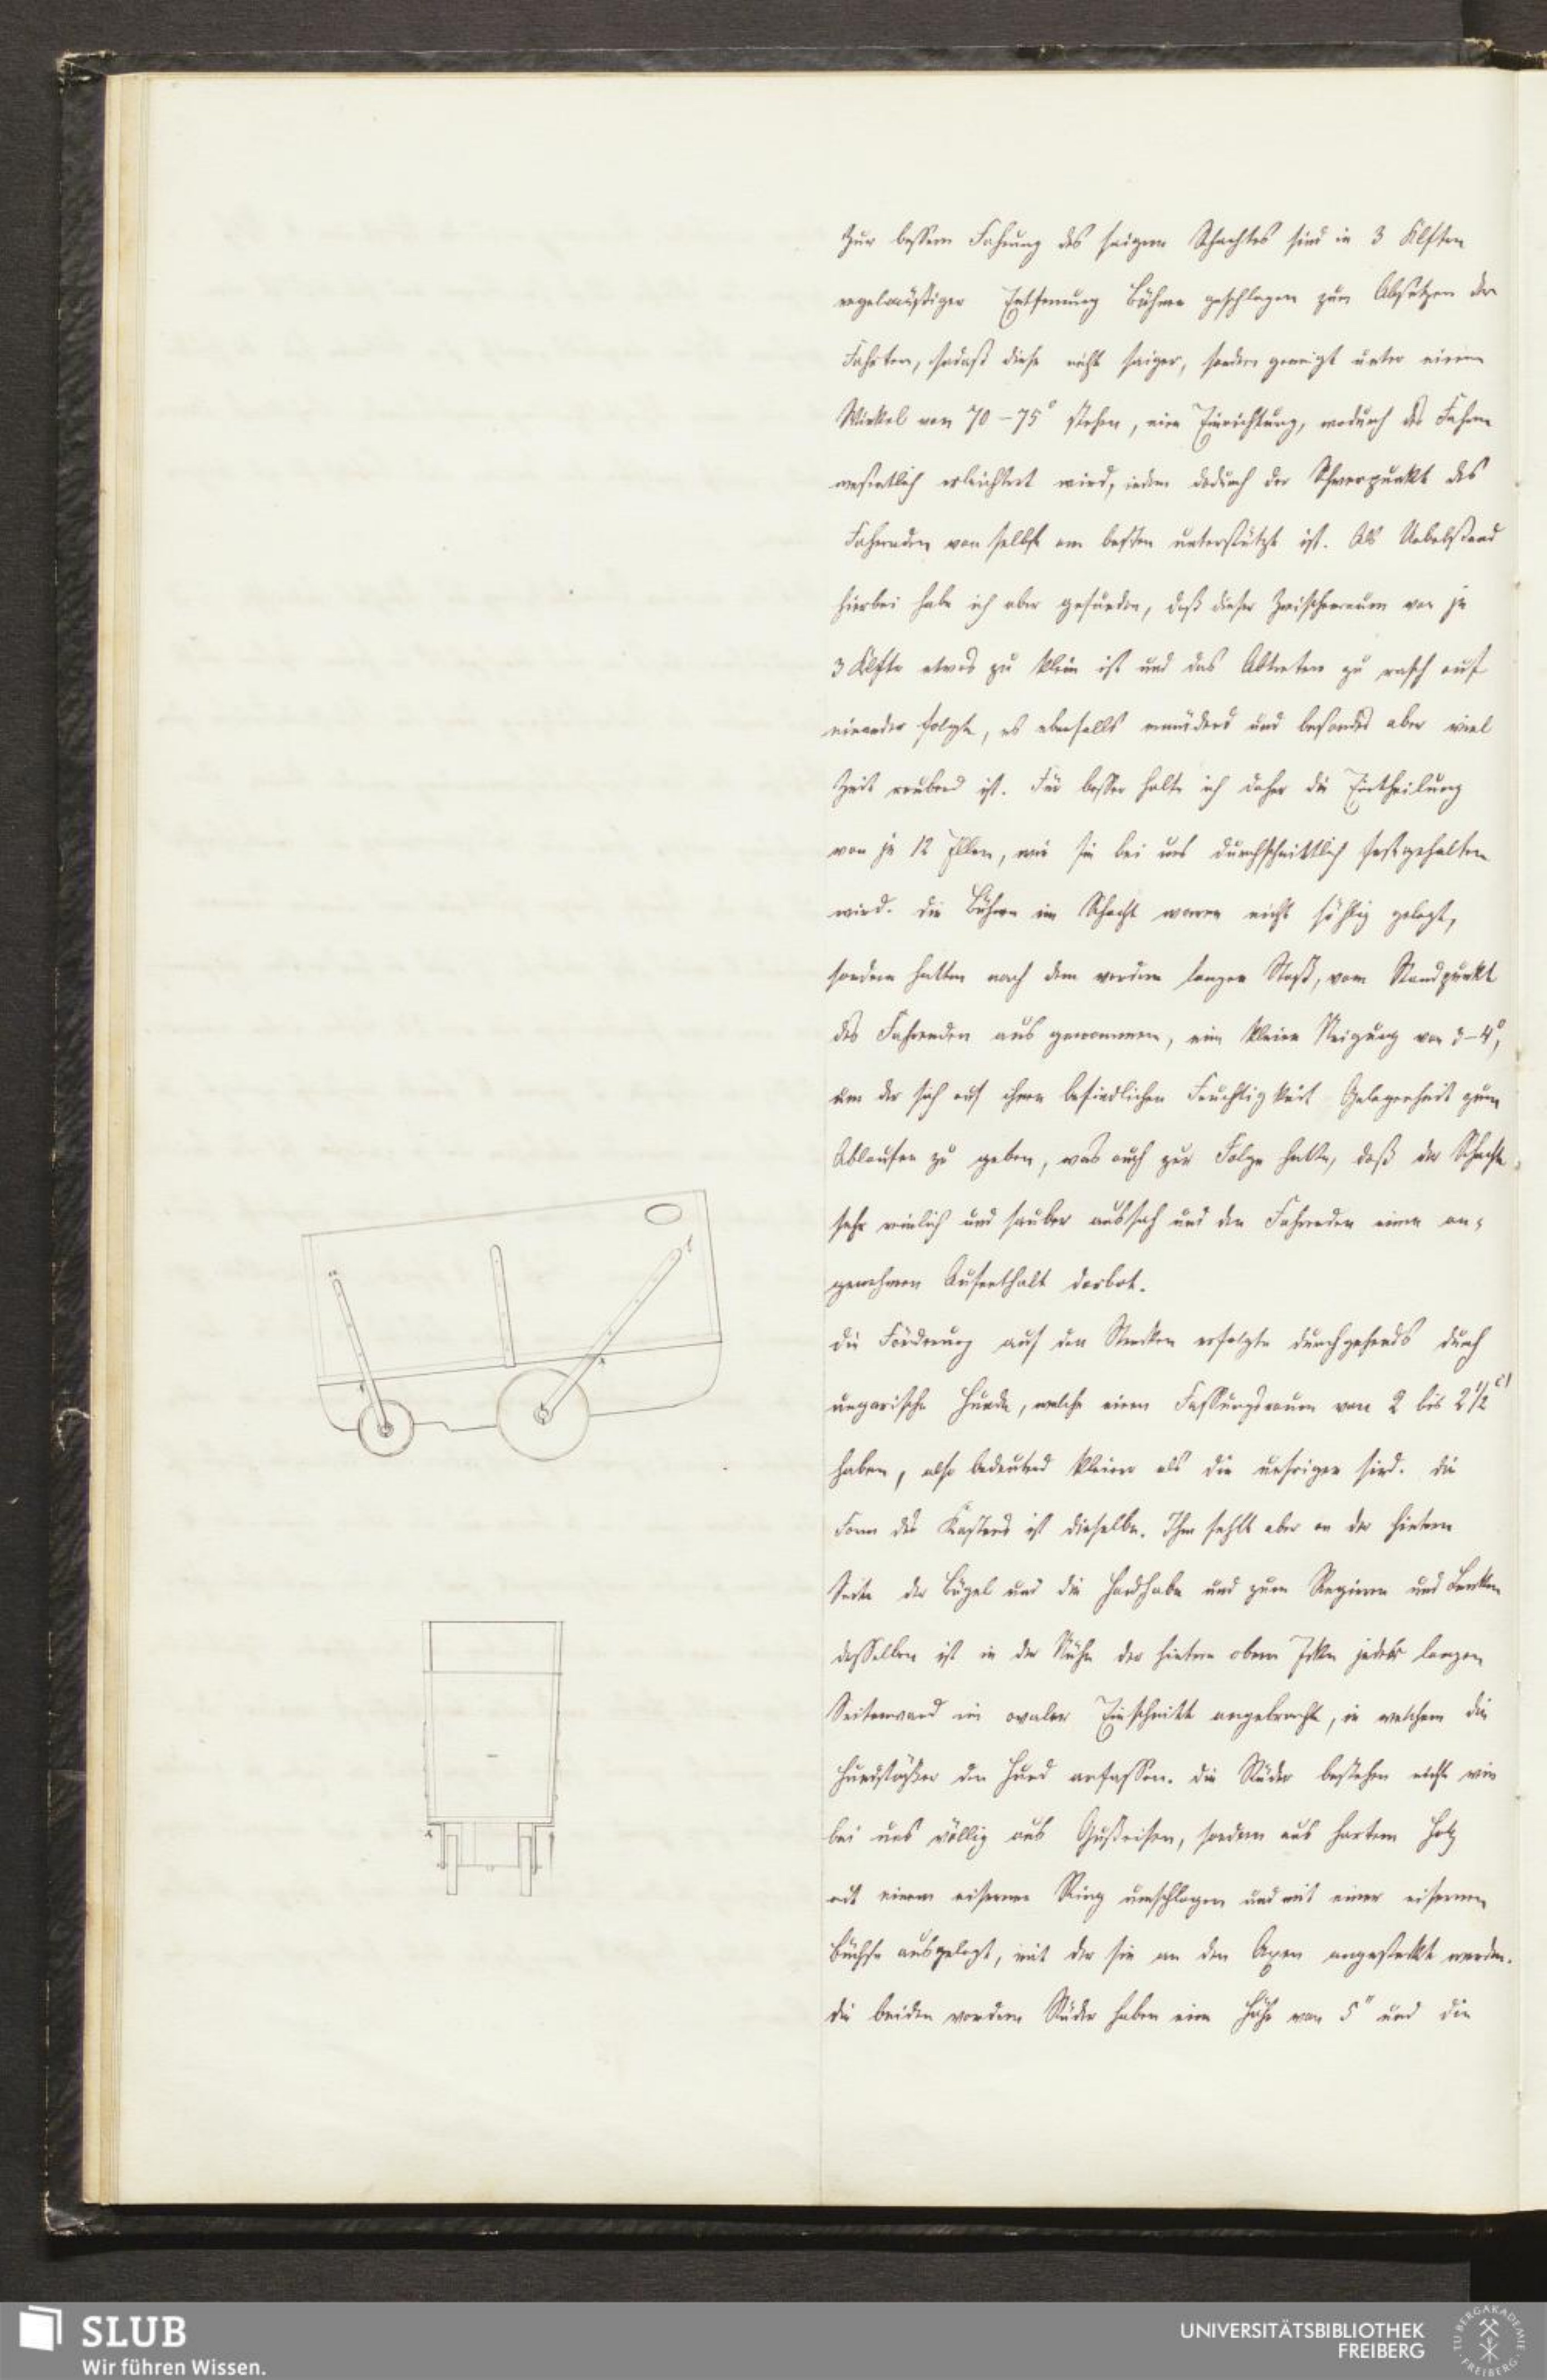 Zur bessern Fahrung des saigern Schachtes sind in 3 Klftrn
regelmäßiger Entfernung Bühnen geschlagen zum Absetzen der
Fahrten, sodaß diese nicht saiger, sondern geneigt unter einem
Winkel von 70–75° stehen, eine Einrichtung, wodurch das Fahren
wesentlich erleichtert wird, indem dadurch der Schwerpunkt des
Fahrenden von selbst am besten unterstützt ist. Als Uebelstand
hierbei habe ich aber gefunden, daß dieser Zwischenraum von je
3 Klftr etwas zu klein ist und das Abtreten zu rasch auf
einander folgte, es ebenfalls ermüdend und besonders aber viel
Zeit raubend ist. Für besser halte ich daher die Eintheilung
von je 12 Ellen, wie sie bei uns durchschnittlich festgehalten
wird. Die Bühnen im Schacht waren nicht söhlig gelegt,
sondern hatten nach dem vordern langen Stoß, vom Standpunkt
des Fahrenden aus genommen, eine kleine Neigung von 3–4°,
um der sich auf ihnen befindlichen Feuchtigkeit Gelegenheit zum
Ablaufen zu geben, was auch zur Folge hatte, daß der Schacht
sehr reinlich und sauber aussah und den Fahrenden einen an-
genehmen Aufenthalt darbot.
Die Förderung auf den Strecken erfolgte durchgehends durch
ungarische Hunde, welche einen Fassungsraum von 2 bis 2 1/2 c'
haben, also bedeutend kleiner als die unsrigen sind. Die
Form des Kastens ist dieselbe. Ihm fehlt aber an der hintern
Seite der Bügel und die Handhabe und zum Regieren und Lenken
desselben ist in der Nähe der hintern obern Ecke jeder langen
Seitenwand ein ovaler Einschnitt angebracht, in welchem die
Hundstößer den Hund anfassen. Die Räder bestehen nicht wie
bei uns völlig aus Gußeisen, sondern aus hartem Holz
mit einem eisernen Ring umschlagen und mit einer eisernen
Büchse ausgelegt, mit der sie an den Axen angesteckt werden.
Die beiden vordern Räder haben eine Höhe von 5" und die
SLUB
Wir führen Wissen.
UNIVERSITÄTSBIBLIOTHEK
FREIBERG
TU BERGAKADEMIE
FREIBERG